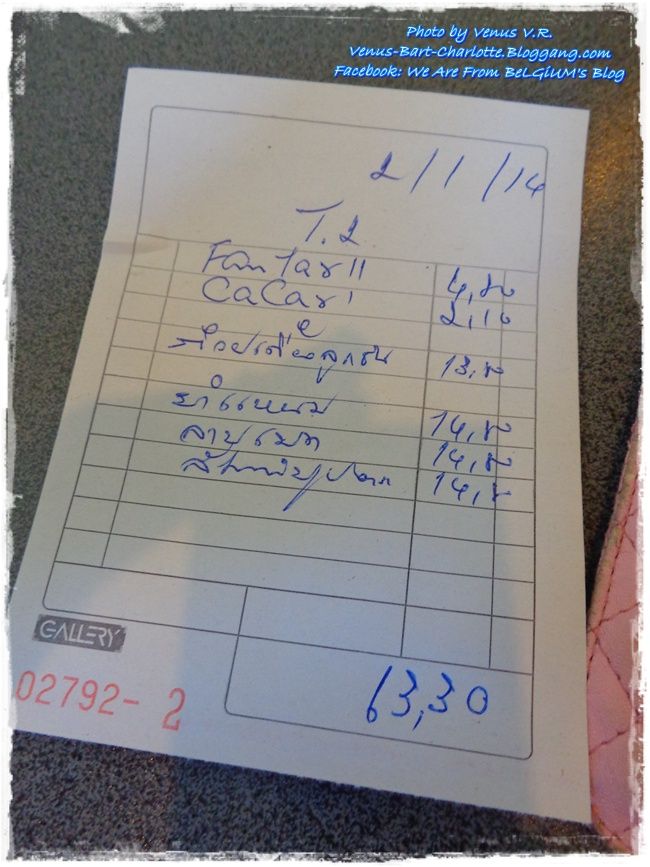 Photo by Venus V.R.
Venus-Bart-Charlotte.Bloggang.com
Facebook: We Are From BeLGiUM's Blog
2/1/14
T.2
Fan Tar II 4,20
CaCar I 2,10
ก๋วยเตี๋ยวลูกชิ้น 13,50
ยำแหนม 14,50
ลาบ 14,50
14,50
GALLERY
02792- 2
63,30